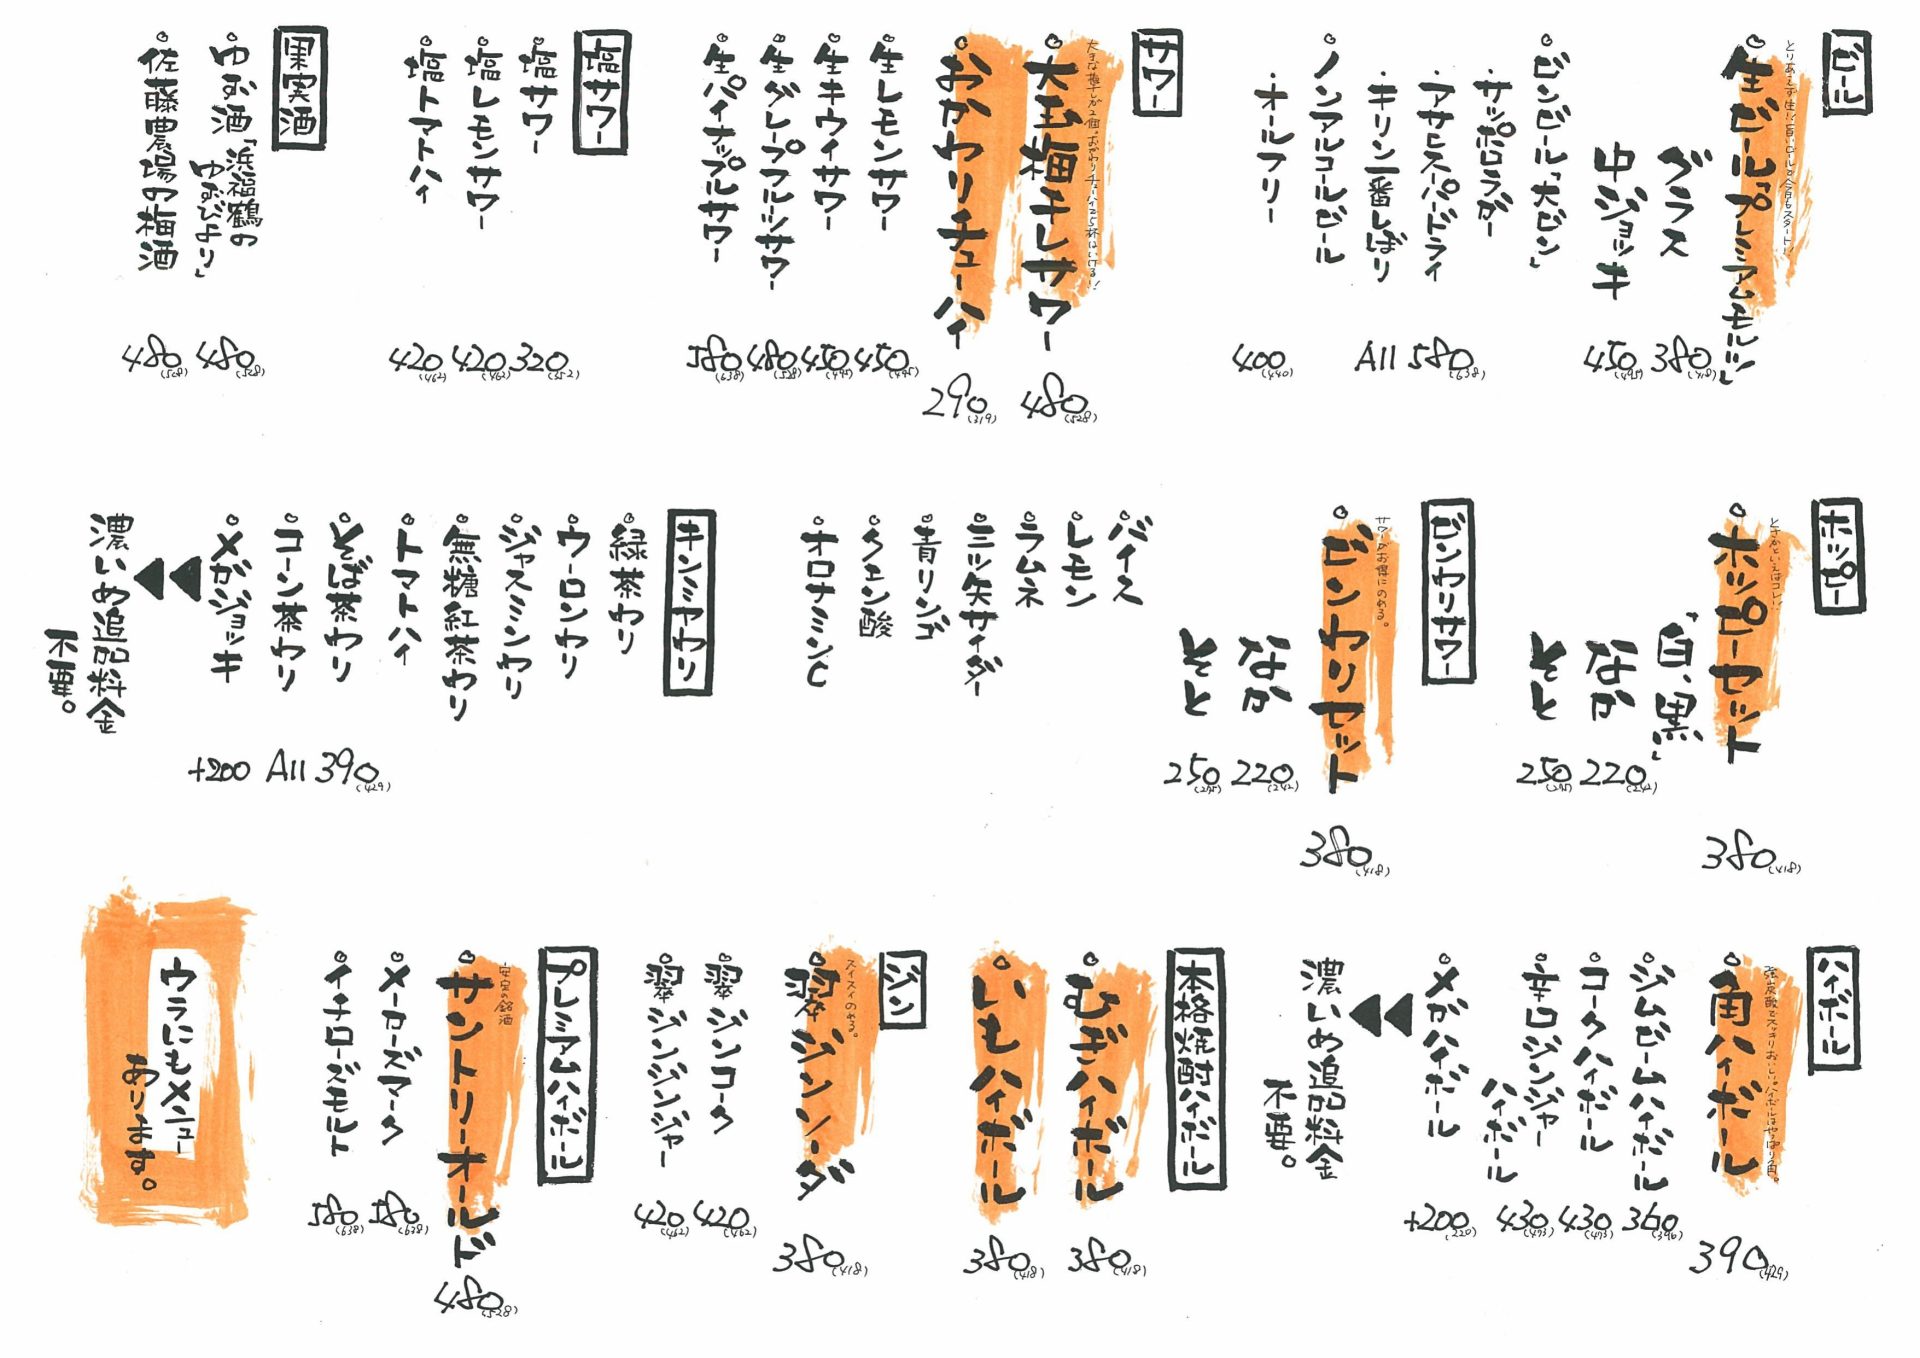 ビール
とりあえず生!!
生ビール「プレミアムモルツ」
グラス
380(418)
中ジョッキ
450(495)
ビンビール「大ビン」
・サッポロラガー
・アサヒスーパードライ
・キリン一番しぼり
All 580(638)
ノンアルコールビール
・オールフリー
400(440)
サワー
大玉梅干しサワー
480(528)
おかわりチューハイ
290(319)
生レモンサワー
450(495)
生キウイサワー
450(495)
生グレープフルーツサワー
480(528)
生パイナップルサワー
580(638)
塩サワー
塩サワー
320(352)
塩レモンサワー
420(462)
塩トマトハイ
420(462)
果実酒
ゆず酒「浜福鶴の
ゆずびより」
480(528)
佐藤農場の梅酒
480(528)
ホッピー
ときわといえばコレ!!
ホッピーセット
「白、黒」
380(418)
なか
220(242)
そと
250(275)
ビンワリサワー
サワーがお得にのめる。
ビンワリセット
380(418)
なか
220(242)
そと
250(275)
バイス
レモン
ラムネ
三ツ矢サイダー
青リンゴ
クエン酸
オロナミンC
キンミヤワリ
緑茶わり
ウーロンわり
ジャスミンわり
無糖紅茶わり
トマトハイ
そば茶わり
コーン茶わり
All 390(429)
メガジョッキ
+200
濃いめ追加料金
不要。
ハイボール
強炭酸でスッキリおいしい。ハイボールはやっぱり角。
角ハイボール
390(429)
ジムビームハイボール
360(396)
コークハイボール
430(473)
辛口ジンジャー
ハイボール
430(473)
メガハイボール
+200(220)
濃いめ追加料金
不要。
本格焼酎ハイボール
むぎハイボール
380(418)
いもハイボール
380(418)
ジン
スイスイのめる。
翠ジンソーダ
380(418)
翠ジンコーク
420(462)
翠ジンジンジャー
420(462)
プレミアムハイボール
安定の銘酒
サントリーオールド
480(528)
メーカーズマーク
580(638)
イチローズモルト
580(638)
ウラにもメニュー
あります。